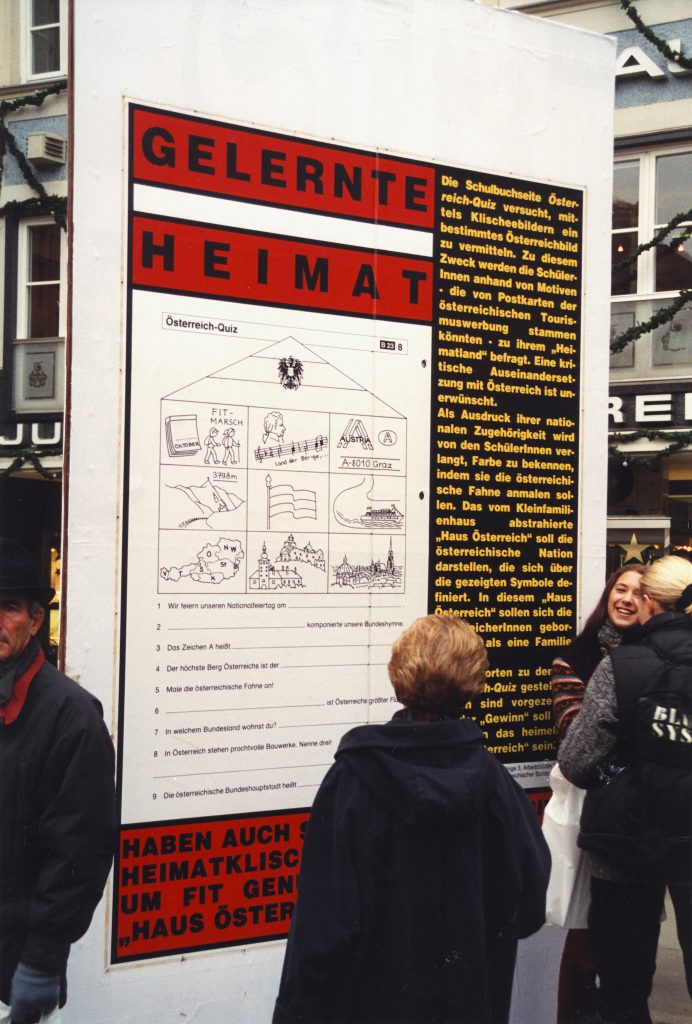 GELERNTE
HEIMAT
Österreich-Quiz
B 23 8
FIT-
MARSCH
OKTOBER
Land der Ber-ge,...
AUSTRIA
A
A-8010 Graz
3798m
O
N
W
S
St
B
S
K
1 Wir feiern unseren Nationalfeiertag am
2 komponierte unsere Bundeshymne.
3 Das Zeichen A heißt
4 Der höchste Berg Österreichs ist der
5 Male die österreichische Fahne an!
6 ist Österreichs größter
7 In welchem Bundesland wohnst du?
8 In Österreich stehen prachtvolle Bauwerke. Nenne drei!
9 Die österreichische Bundeshauptstadt heißt
Die Schulbuchseite Öster-
reich-Quiz versucht, mit-
tels Klischeebildern ein
bestimmtes Österreichbild
zu vermitteln. Zu diesem
Zweck werden die Schüler-
Innen anhand von Motiven
- die von Postkarten der
österreichischen Touris-
muswerbung stammen
könnten - zu ihrem „Hei-
matland“ befragt. Eine kri-
tische Auseinanderset-
zung mit Österreich ist un-
erwünscht.
Als Ausdruck ihrer natio-
nalen Zugehörigkeit wird
von den SchülerInnen ver-
langt, Farbe zu bekennen,
indem sie die österreichi-
sche Fahne anmalen sol-
len. Das vom Kleinfamili-
enhaus abstrahierte
„Haus Österreich“ soll die
österreichische Nation
darstellen, die sich über
die gezeigten Symbole de-
finiert. In diesem „Haus
Österreich“ sollen sich die
eicherInnen gebor-
als eine Familie
orten zu den
-Quiz gestel
n sind vorgeze
„Gewinn“ soll
n das heimel
erreich“ sein.
HABEN AUCH S
HEIMATKLISC
UM FIT GEN
„HAUS ÖSTER
JU
AU
REI
BL
SYS